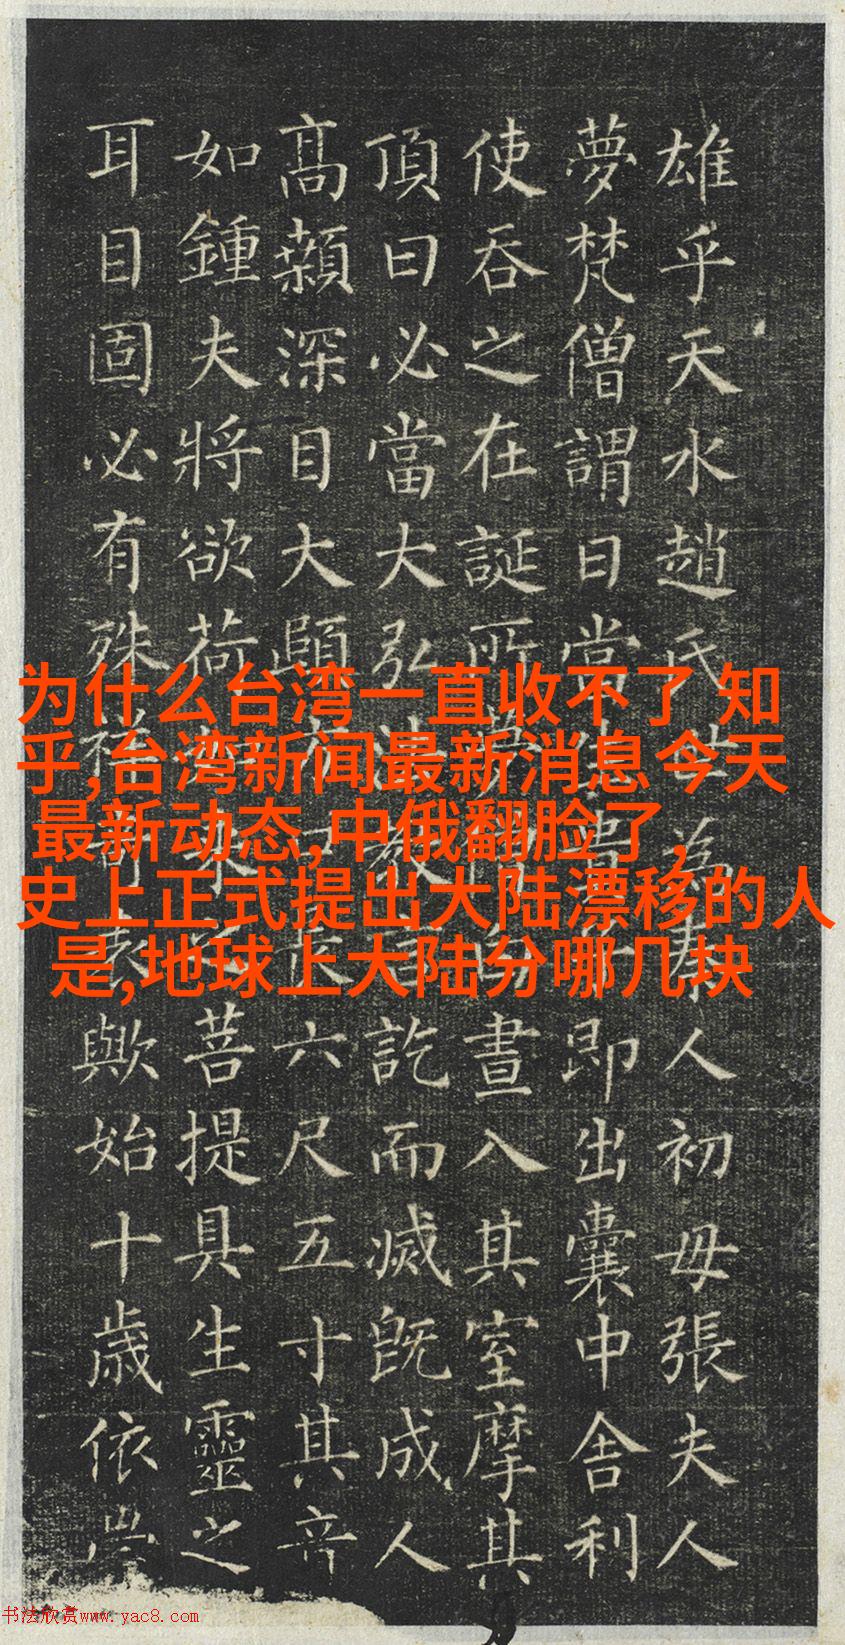 雄乎天水趙氏世為秦人初母張夫人
夢梵僧謂曰當生貴子即出囊中舍利
使吞之在誕所夢僧白晝入其室摩其
頂曰必當大弘法教言訖而滅既成人
高顙深目大頤方口長六尺五寸其音
如鍾夫將欲荷如來之菩提具生靈之
耳目固必有殊祥奇表歟始十歲依
为什么台湾一直收不了 知
乎,台湾新闻最新消息今天
最新动态,中俄翻脸了,
史上正式提出大陆漂移的人
是,地球上大陆分哪几块
书法欣赏www.yac8.com